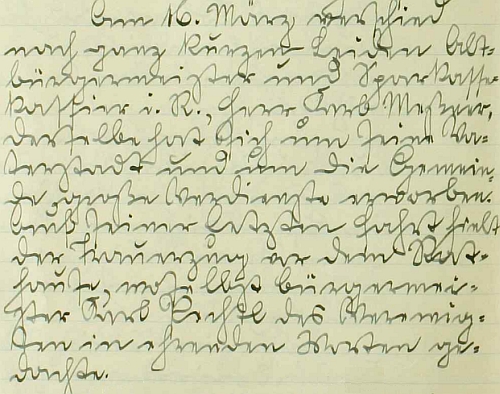 Am 16. März verschied
nach ganz kurzen Leiden Alt-
bürgermeister und Sparkasse-
kassier i. R., Herr Karb Metzger,
derselbe hat sich um seine Va-
terstadt und um die Gemein-
de große Verdienste erworben.
Auf seiner letzten Fahrt hielt
der Trauerzug vor dem Rat-
hause, woselbst Bürgermei-
ster Karb Pechtl des Verewig-
ten in ehrenden Worten ge-
dachte.